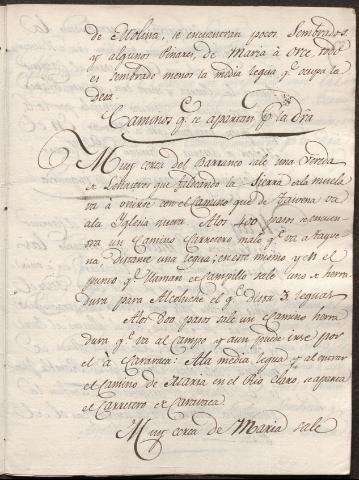 de Molina, se encuentran pocos Sembrados
y algunos Pinares, de Maria à Orze, todo
es sembrado menos la media legua q.e ocupa la
Deza.
Caminos q.e se apartan p.r la dr̃a
Muy cerca del Barranco sale una Vereda
de Leñateros que faldeando la Sierra de la muela
va à unirse con el Camino que de Taivena va
ala Yglesia nueva. Alos 400 pasos se encuen
tra un Camino Carretero malo q.e va a
distante una legua; en este mismo, y en el
punto q.e llaman el Campillo sale uno de herra
dura para Alcoluche el q.e dista 3 leguas
Alos 800 pasos sale un Camino herra
dura q.e va al Campo y aun puede irse por
el à Caravaca: Ala media legua, y al entrar
el Camino de Maria en el Rio Claro, se aparta
el Carretero de Caravaca
Muy cerca de Maria sale